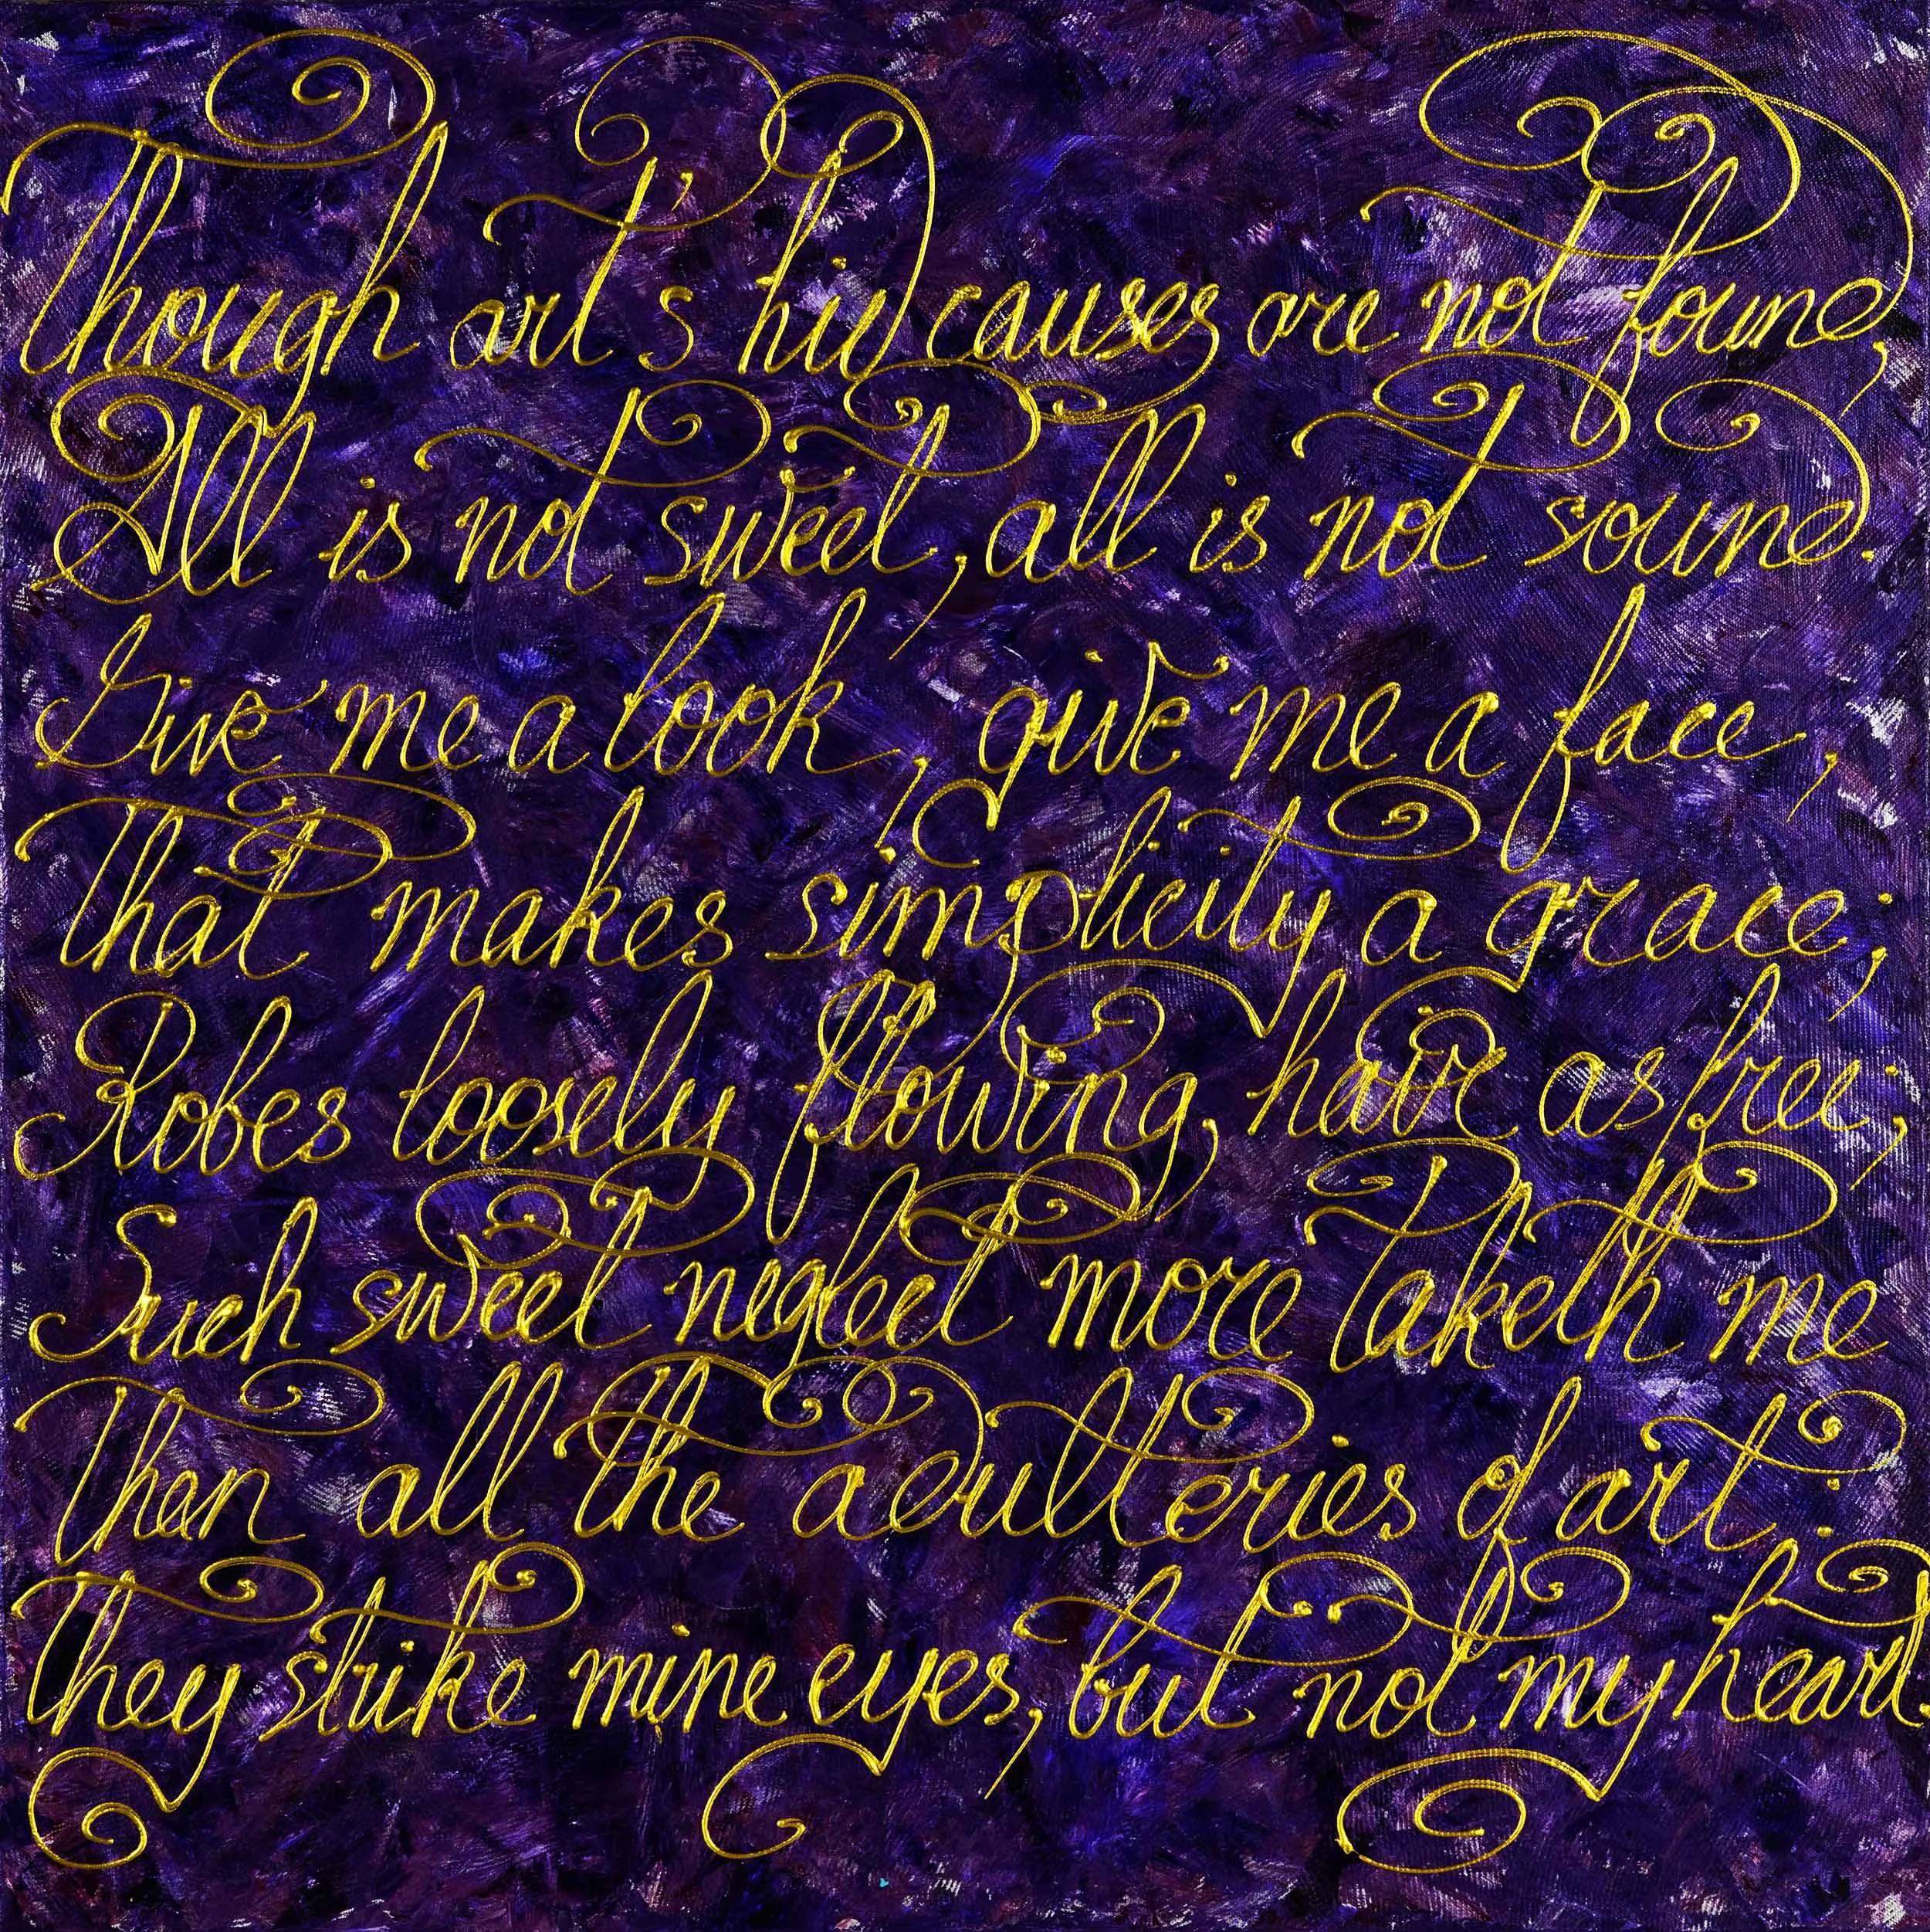 Though art's hid causes are not found,
All is not sweet, all is not sound.
Give me a look, give me a face,
That makes simplicity a grace;
Robes loosely flowing, hair as free;
Such sweet neglect more taketh me
Than all the adulteries of art:
They strike mine eyes, but not my heart.